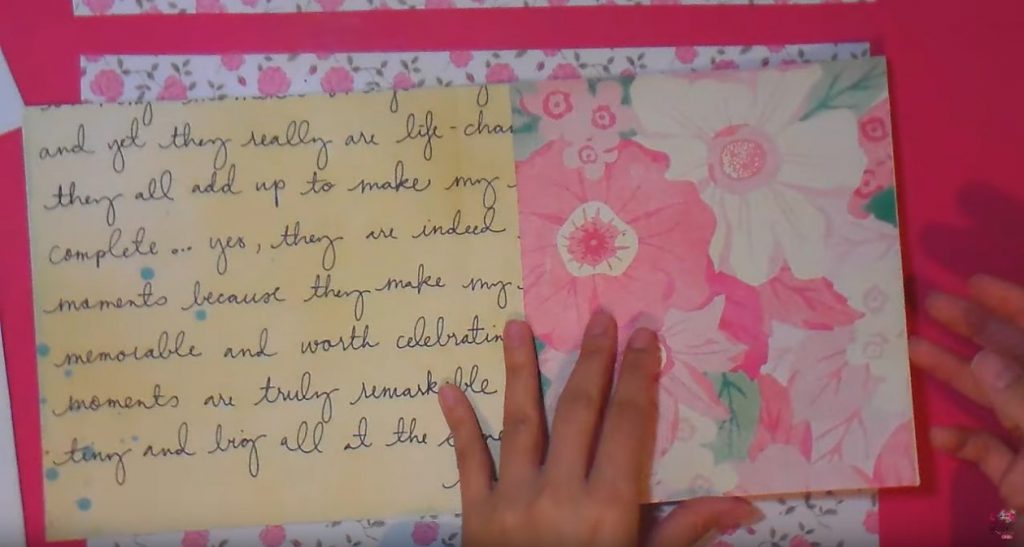 and yet they really are life-chan
they all add up to make my
complete... yes, they are indeed
moments because they make my
memorable and worth celebratin
moments are truly remarkable
tiny and big all at the same